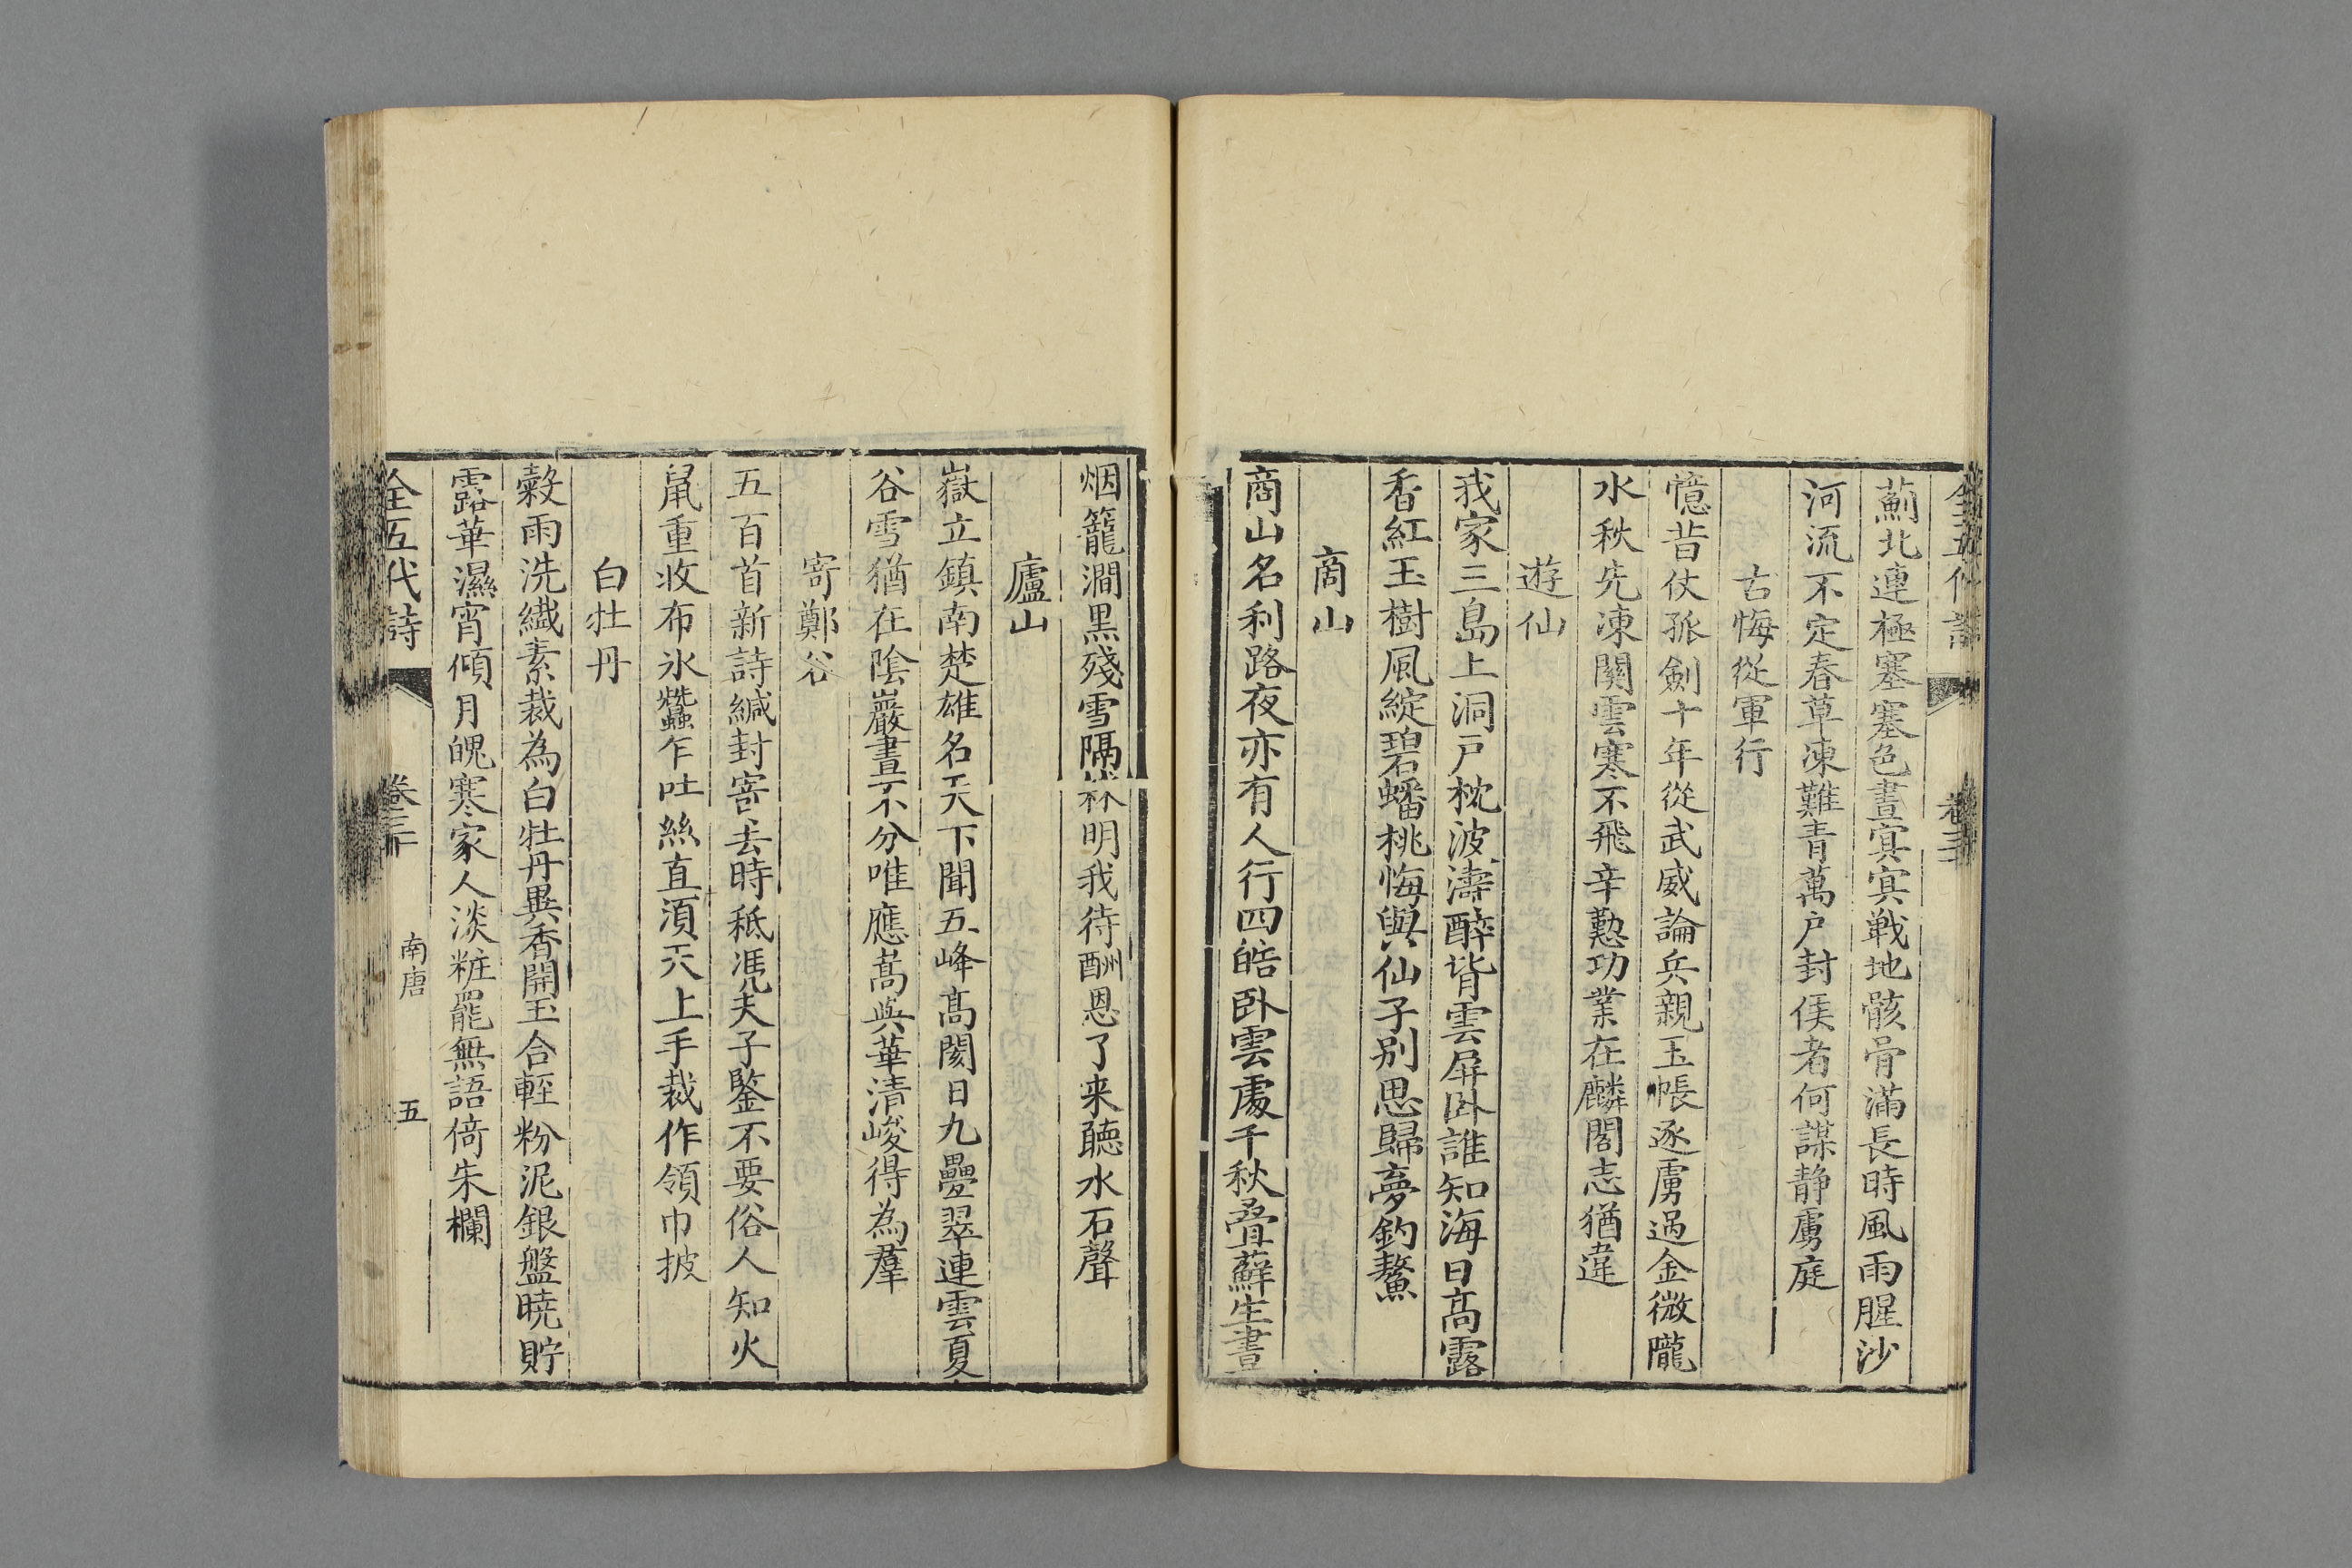 全五代詩
卷三十
薊北連極塞塞色晝冥冥戰地骸骨滿長時風雨腥沙
河流不定春草凍難青萬戶封侯者何謀静虜庭
古悔從軍行
憶昔仗孤劍十年從武威論兵親玉帳逐虜過金微隴
水秋先凍關雲寒不飛辛勤功業在麟閣志猶違
遊仙
我家三島上洞戶枕波濤醉背雲屏卧誰知海日高露
香紅玉樹風綻碧蟠桃悔與仙子别思歸夢釣鰲
商山
商山名利路夜亦有人行四皓卧雲處千秋疊蘚生晝
烟籠澗黑殘雪隔林明我待酬恩了来聽水石聲
廬山
嶽立鎮南楚雄名天下聞五峰髙閡日九疊翠連雲夏
谷雪猶在陰巖晝不分唯應嵩與華清峻得為羣
寄鄭谷
五百首新詩緘封寄去時秪凴夫子鑒不要俗人知火
䑕重收布氷蠶乍吐絲直湏天上手裁作領巾披
白牡丹
榖雨洗纎素裁為白牡丹異香開玉合輕粉泥銀盤曉貯
露華濕宵傾月魄寒家人淡粧罷無語倚朱欄
全五代詩
卷三十
南唐
五